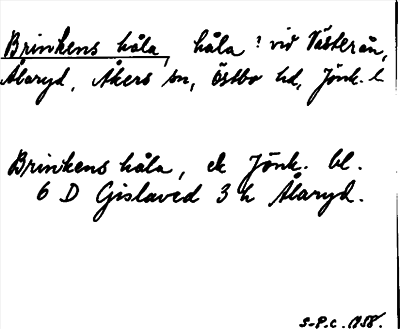 Brinkens håla, håla? vid Västerån,
Ålaryd, Åkers sn, Östbo hd, Jönk. l
Brinkens håla, ek Jönk. bl.
6 D Gislaved 3 h Ålaryd.
S-P.C. 1958.